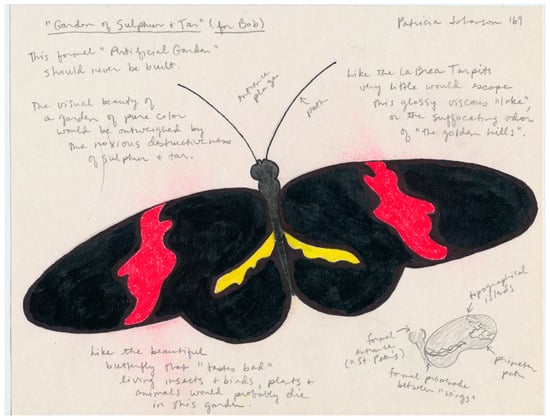 "Garden of Sulphur + Tar" (for Bob)
Patricia Johanson '69
This formal "Artificial Garden"
should never be built.
The visual beauty of
a garden of pure color
would be outweighed by
the noxious destructiveness
of sulphur + tar.
entrance
plaza
path
Like the La Brea Tarpits
very little would escape
this glossy viscous "lake",
or the suffocating odor
of "the golden hills".
topographical
islands
formal
entrance
(a St. Peter's)
perimeter
path
formal promenade
between "wings"
Like the beautiful
butterfly that "tastes bad"
living insects + birds, plants +
animals would probably die
in this garden.